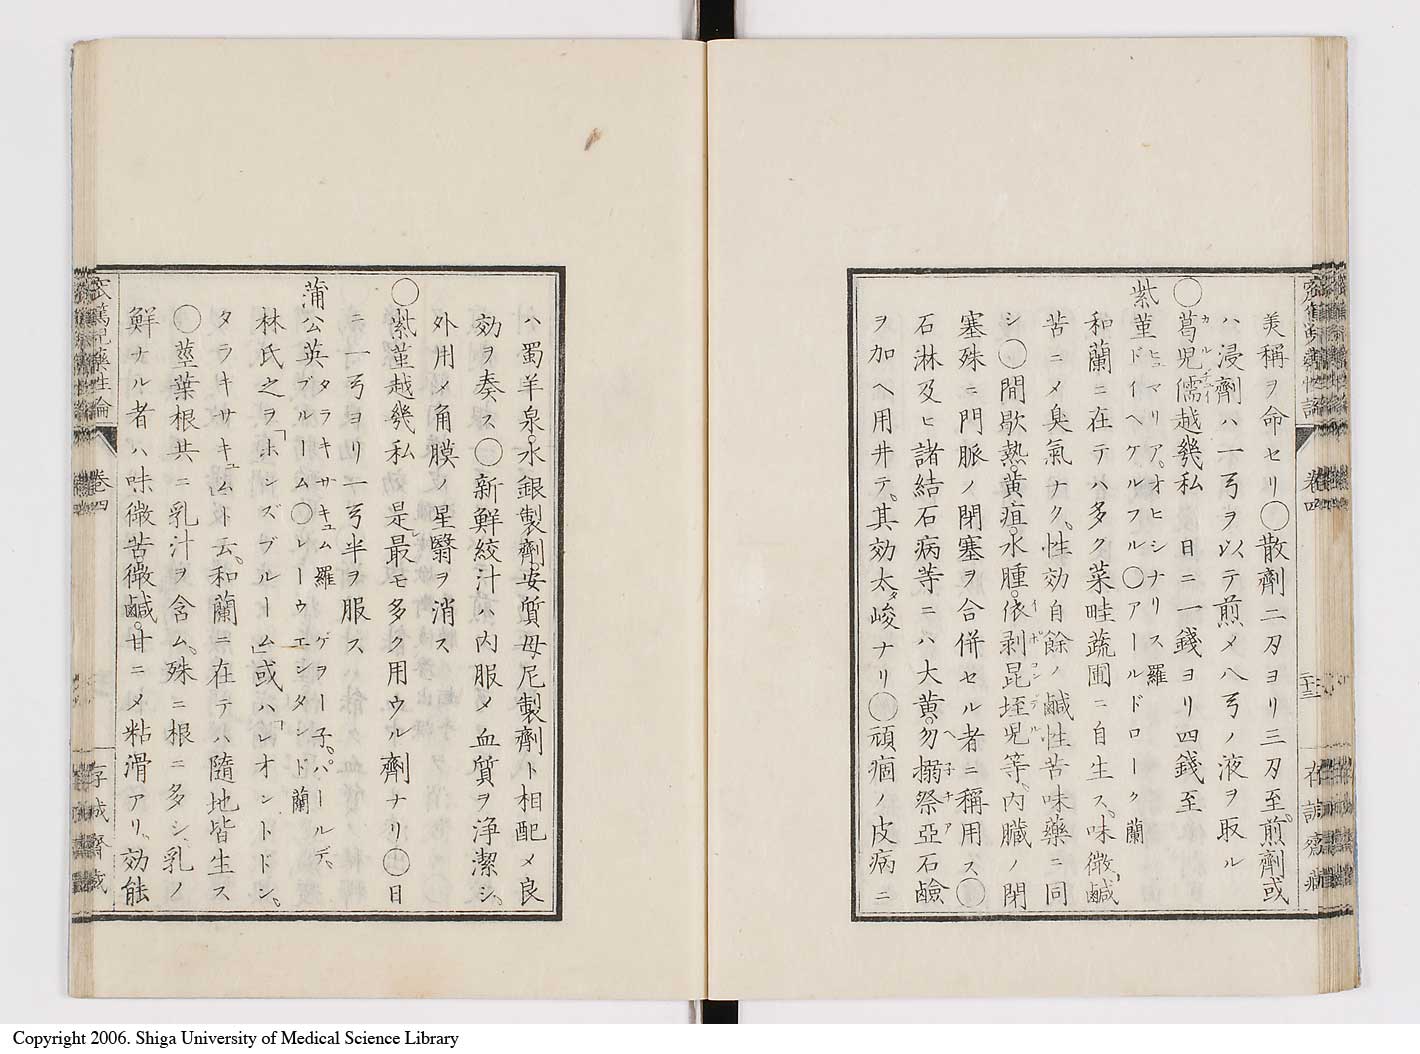 美稱ヲ命セリ○散劑二刀ヨリ三刀至煎劑或
ハ浸劑ハ一弓ヲ以テ煎メ八弓ノ液ヲ取ル
○葛児儒越幾私 日ニ一錢ヨリ四錢至
紫菫ヒュマリア。オヒシナリス羅
ドイヘケルフル○アールドローク蘭
和蘭ニ在テハ多ク菜畦蔬圃ニ自生ス。味微鹹
苦ニメ臭氣ナク。性効自餘ノ鹹性苦味藥ニ同
シ○間歇熱。黄疸。水腫。依剥昆垤児等。内臓ノ閉
塞殊ニ門脈ノ閉塞ヲ合併セル者ニ稱用ス○
石淋及ヒ諸結石病等ニハ大黄。勿搦祭亞石鹼
ヲ加ヘ用井テ。其効太タ峻ナリ○頑痼ノ皮病ニ
卷四
二十三
存誠齋藏
ハ蜀羊泉。水銀製劑安質母尼製劑ト相配メ良
効ヲ奏ス○新鮮絞汁ハ内服メ血質ヲ淨潔シ。
外用メ角膜ノ星翳ヲ消ス
○紫菫越幾私 是レ最モ多ク用ウル劑ナリ○日
ニ一弓ヨリ一弓半ヲ服ス
蒲公英タラキサキュム羅 ゲヲーー子。パールデ。
ブルーーム○レーウエンタンド蘭
林氏之ヲ「ホンズブルーム」或ハ「レオントドン。
タラキサキュム」ト云。和蘭ニ在テハ隨地皆生ス
○莖葉根共ニ乳汁ヲ含ム。殊ニ根ニ多シ。乳ノ
鮮ナル者ハ味微苦微鹹。甘ニメ粘滑アリ。効能
窊篤児藥性論
卷四
存誠齋藏
Copyright 2006. Shiga University of Medical Science Library